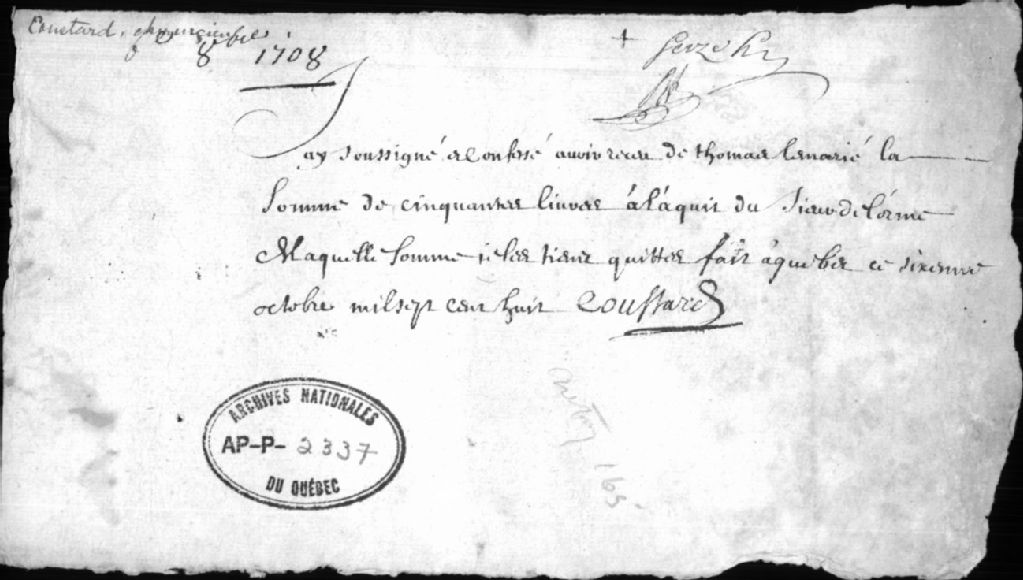 Coustard
8 1708
Jay soussigné et confessé avoir receu de thomas lemarié la
Somme de cinquantes livres à l'aquit du Sieur de lorme
de laquelle somme je les tiens quittes fait à quebec ce sixeme
octobre mil sept cent huit Coustard
ARCHIVES NATIONALES
AP-P- 2337
DU QUÉBEC
165